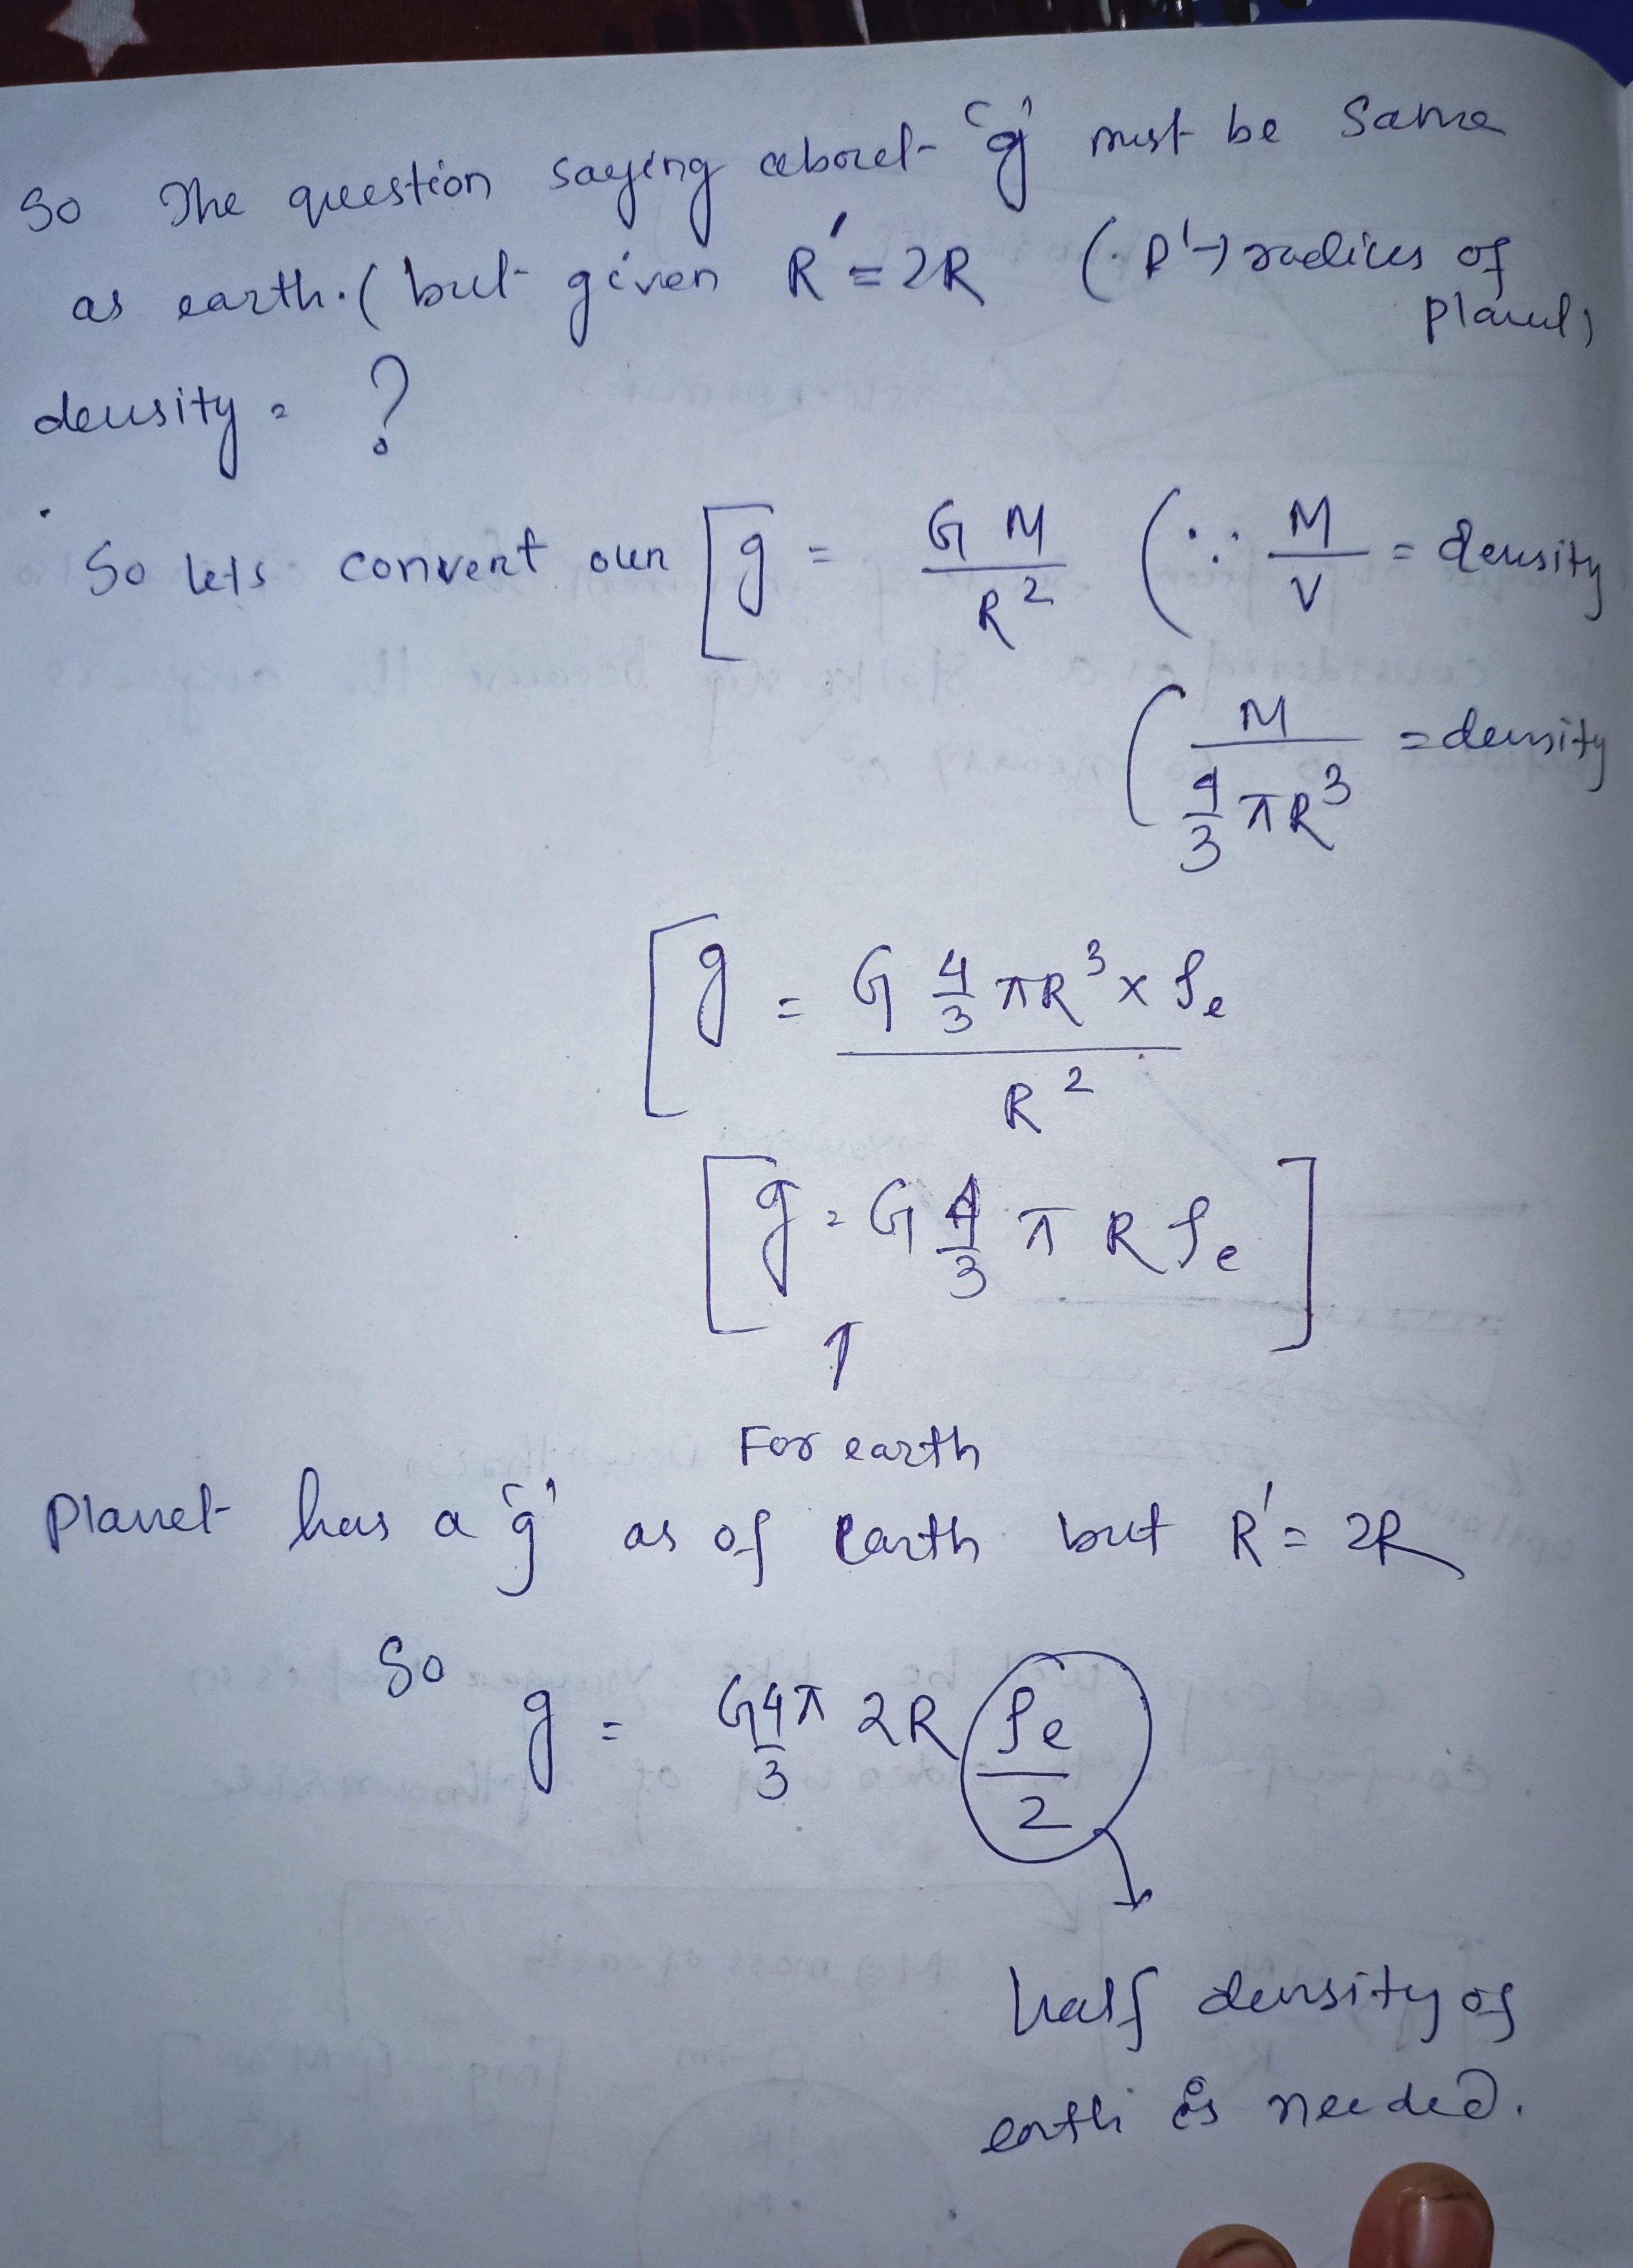 So The question saying about 'g' must be Same
as earth. (but given R' = 2R (R' → radius of
planet)
density = ?
So lets convert our [g = GM / R² (∵ M/V = density
(M / 4/3 πR³ = density
[g = G 4/3 πR³ × ρe / R²
[g = G 4/3 π R ρe]
↑
For earth
Planet has a 'g' as of earth but R' = 2R
So
g = G 4/3 π 2R ρe/2
half density of
earth is needed.